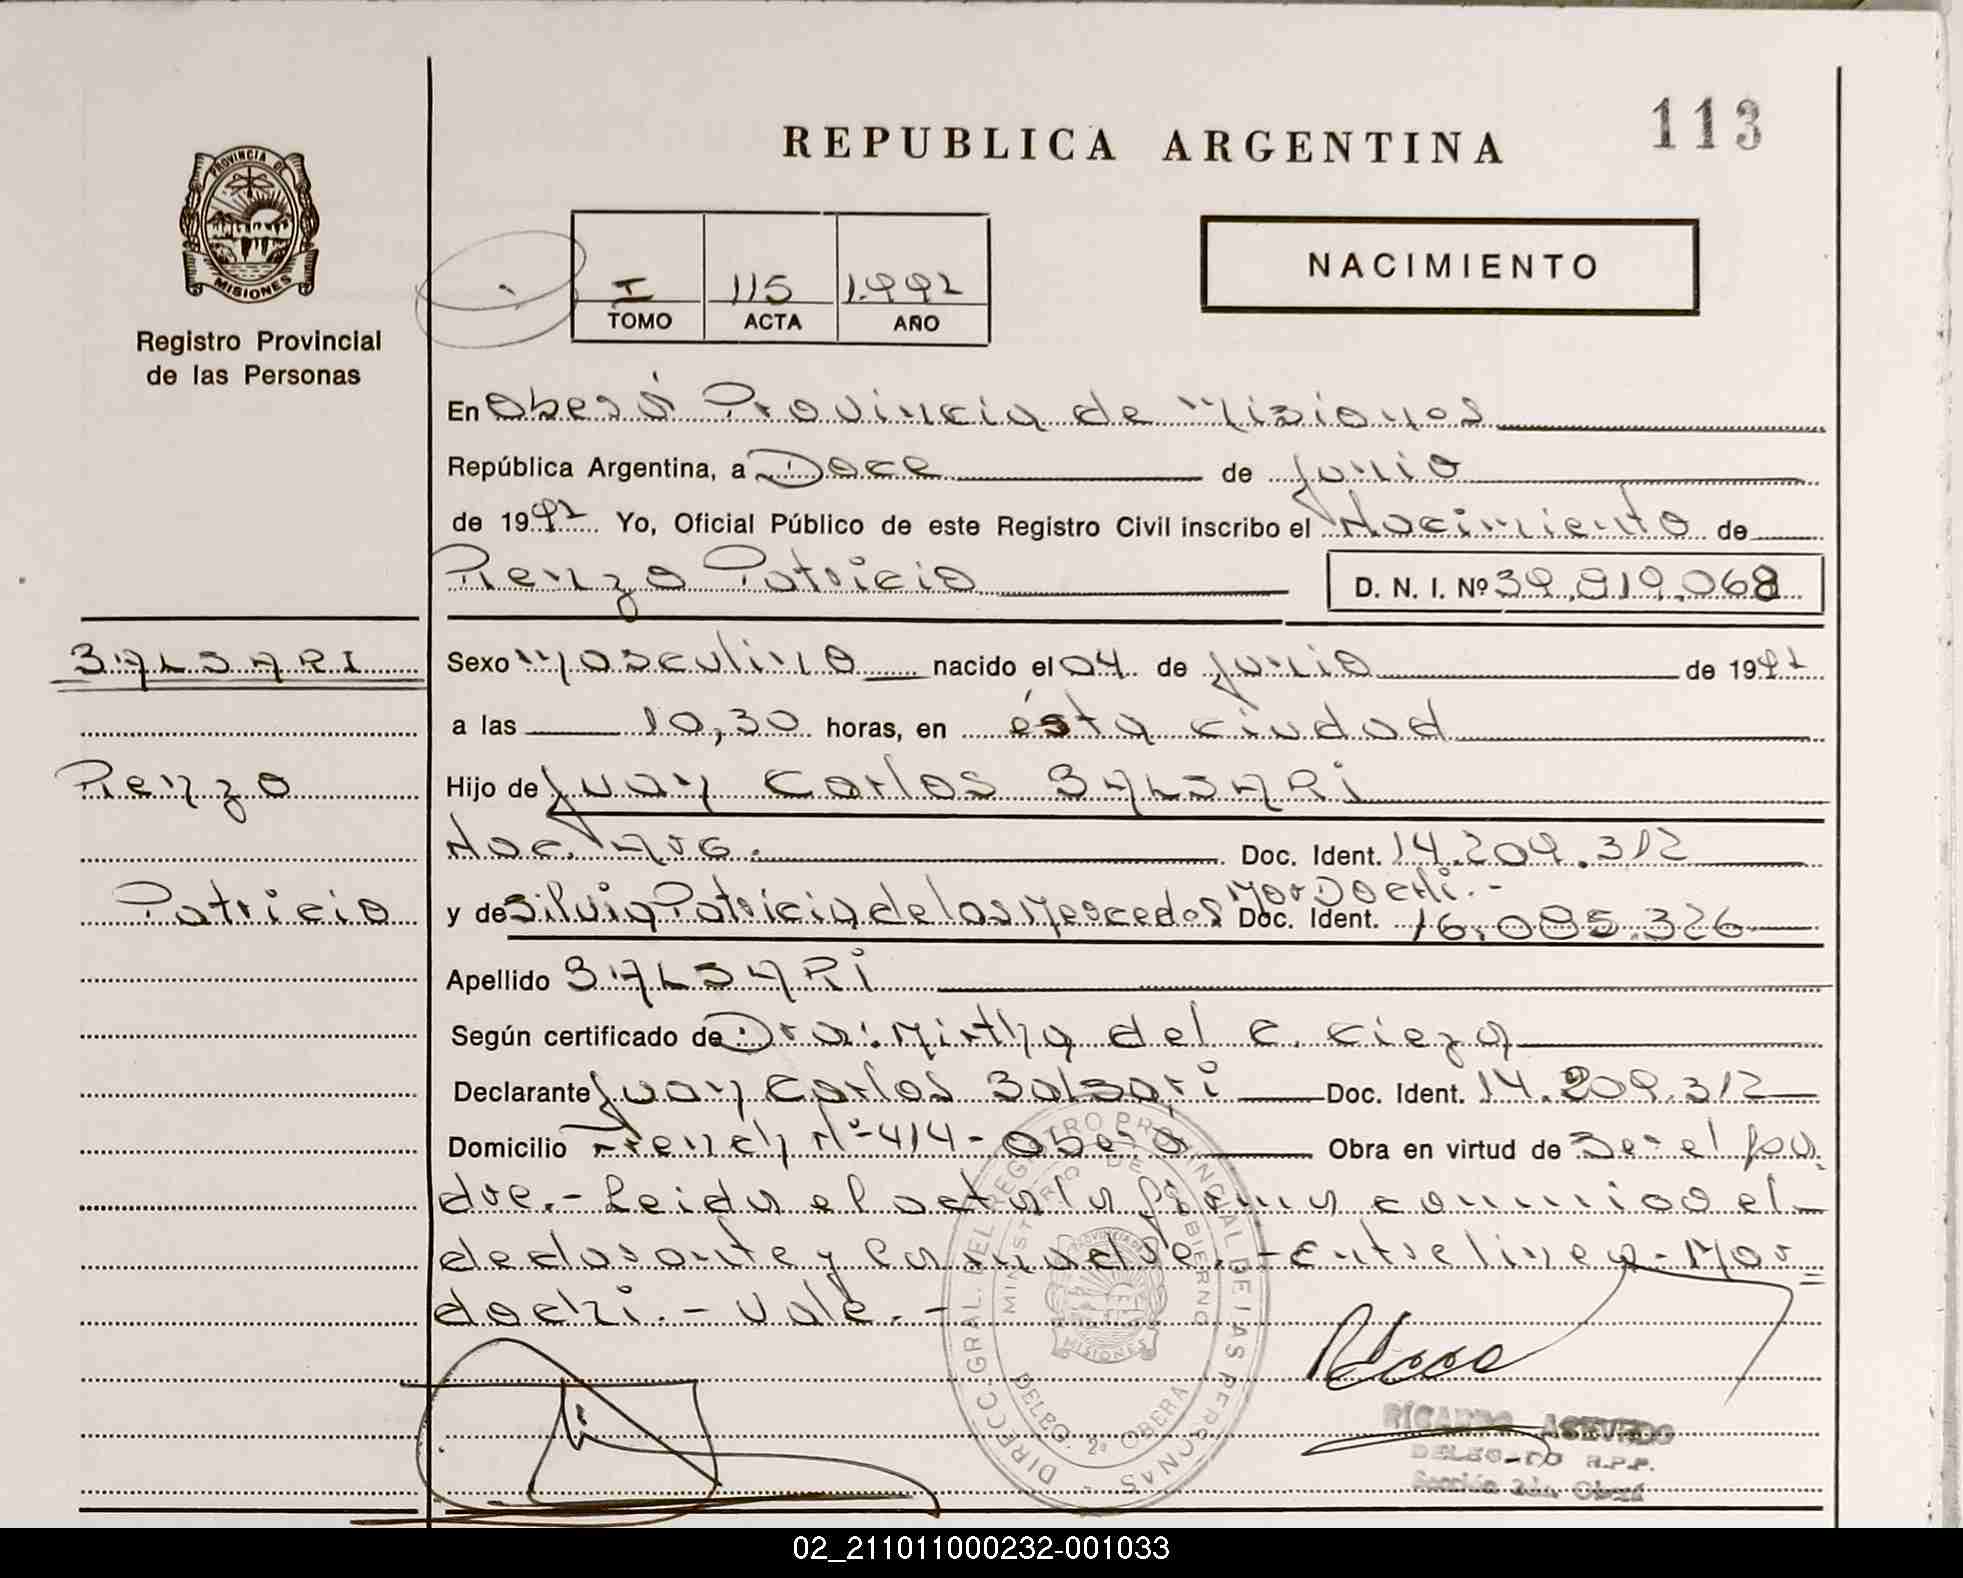 113
REPUBLICA ARGENTINA
PROVINCIA DE
MISIONES
NACIMIENTO
I 115 1.992
TOMO ACTA AÑO
Registro Provincial
de las Personas
En Oberá Provincia de Misiones
República Argentina, a Doce de Junio
de 1992 Yo, Oficial Público de este Registro Civil inscribo el Nacimiento de
Renzo Patricio D. N. I. Nº 39.819.068
BALSARI
Sexo Masculino nacido el 04 de Junio de 1992
a las 10,30 horas, en ésta ciudad
Renzo
Hijo de Juan Carlos BALSARi
Nac. Arg. Doc. Ident. 14.209.312
Patricio
y de Silvia Patricia de las Mercedes MorDochi.- Doc. Ident. 16.085.326
Apellido BALSARi
Según certificado de Dra: Mirtha del C. Cieza
Declarante Juan Carlos Balsari Doc. Ident. 14.209.312
Domicilio French Nº 414 - Oberá Obra en virtud de Ser el pa
dre.- Leida el acta la firma conmigo el
declarante y la madre.- Entrelinea - Mor
dochi.- Vale.-
DIRECC. GRAL. DEL REGISTRO PROVINCIAL DE LAS PERSONAS
MINISTERIO DE GOBIERNO
PROVINCIA DE
MISIONES
DELEG. 2ª OBERA
RICARDO ACEVEDO
DELEGADO R.P.P.
Sección 2da. Oberá
02_211011000232-001033